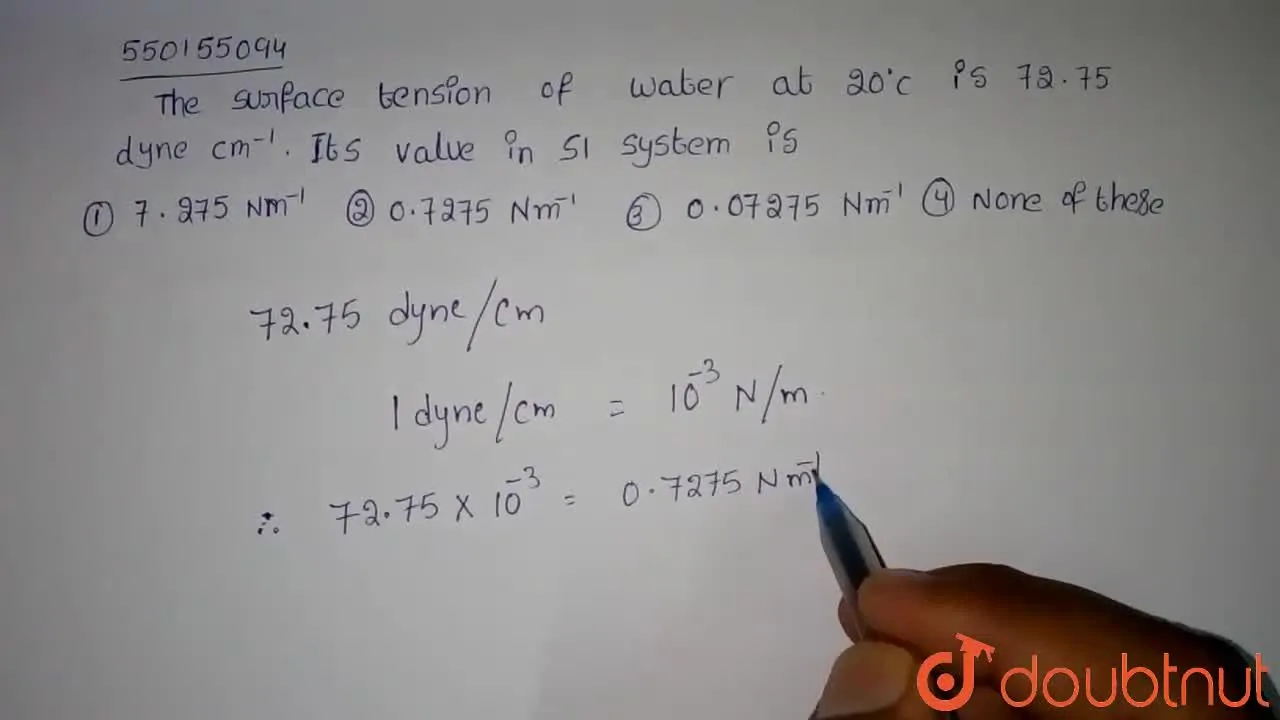 550155094
The surface tension of water at 20°c is 72.75
dyne cm⁻¹. Its value in SI system is
① 7.275 Nm⁻¹ ② 0.7275 Nm⁻¹ ③ 0.07275 Nm⁻¹ ④ None of these
72.75 dyne/cm
1 dyne/cm = 10⁻³ N/m.
∴ 72.75 × 10⁻³ = 0.7275 Nm⁻¹
doubtnut